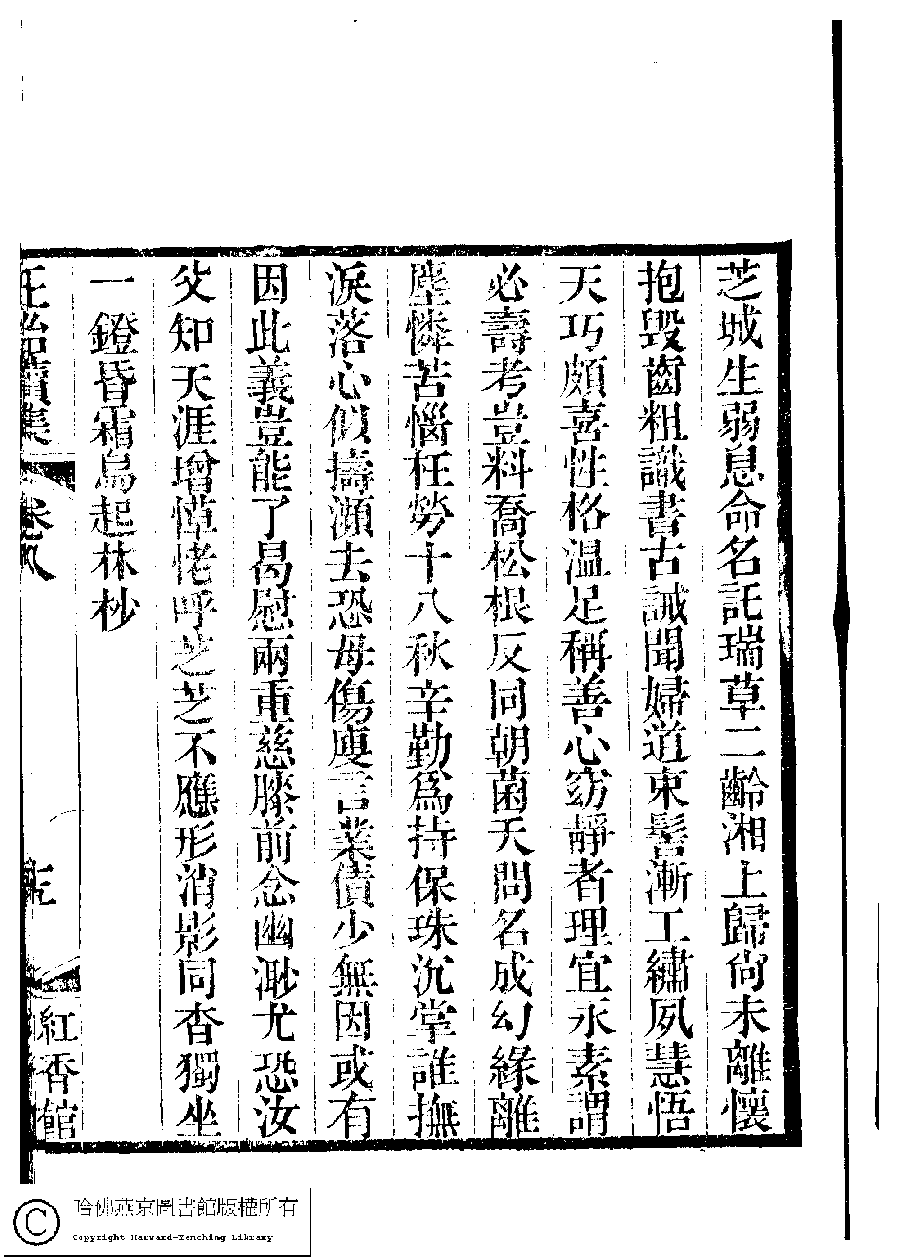 芝城生弱息命名託瑞草二齡湘上歸尙未離懷
抱毀齒粗識書古誡聞婦道束髻漸工繡夙慧悟
天巧頗喜性格溫足稱善心窈靜者理宜永素謂
必壽考豈料喬松根反同朝菌夭問名成幻緣離
塵憐苦惱枉勞十八秋辛勤爲持保珠沉掌誰撫
淚落心似擣瀕去恐母傷廋言業債少無因或有
因此義豈能了曷慰兩重慈膝前念幽渺尤恐汝
父知天涯增悼恅呼芝芝不應形消影同杳獨坐
一鐙昏霜烏起林杪
續集
卷八
紅香館
哈佛燕京圖書館版權所有
Copyright Harvard-Yenching Library